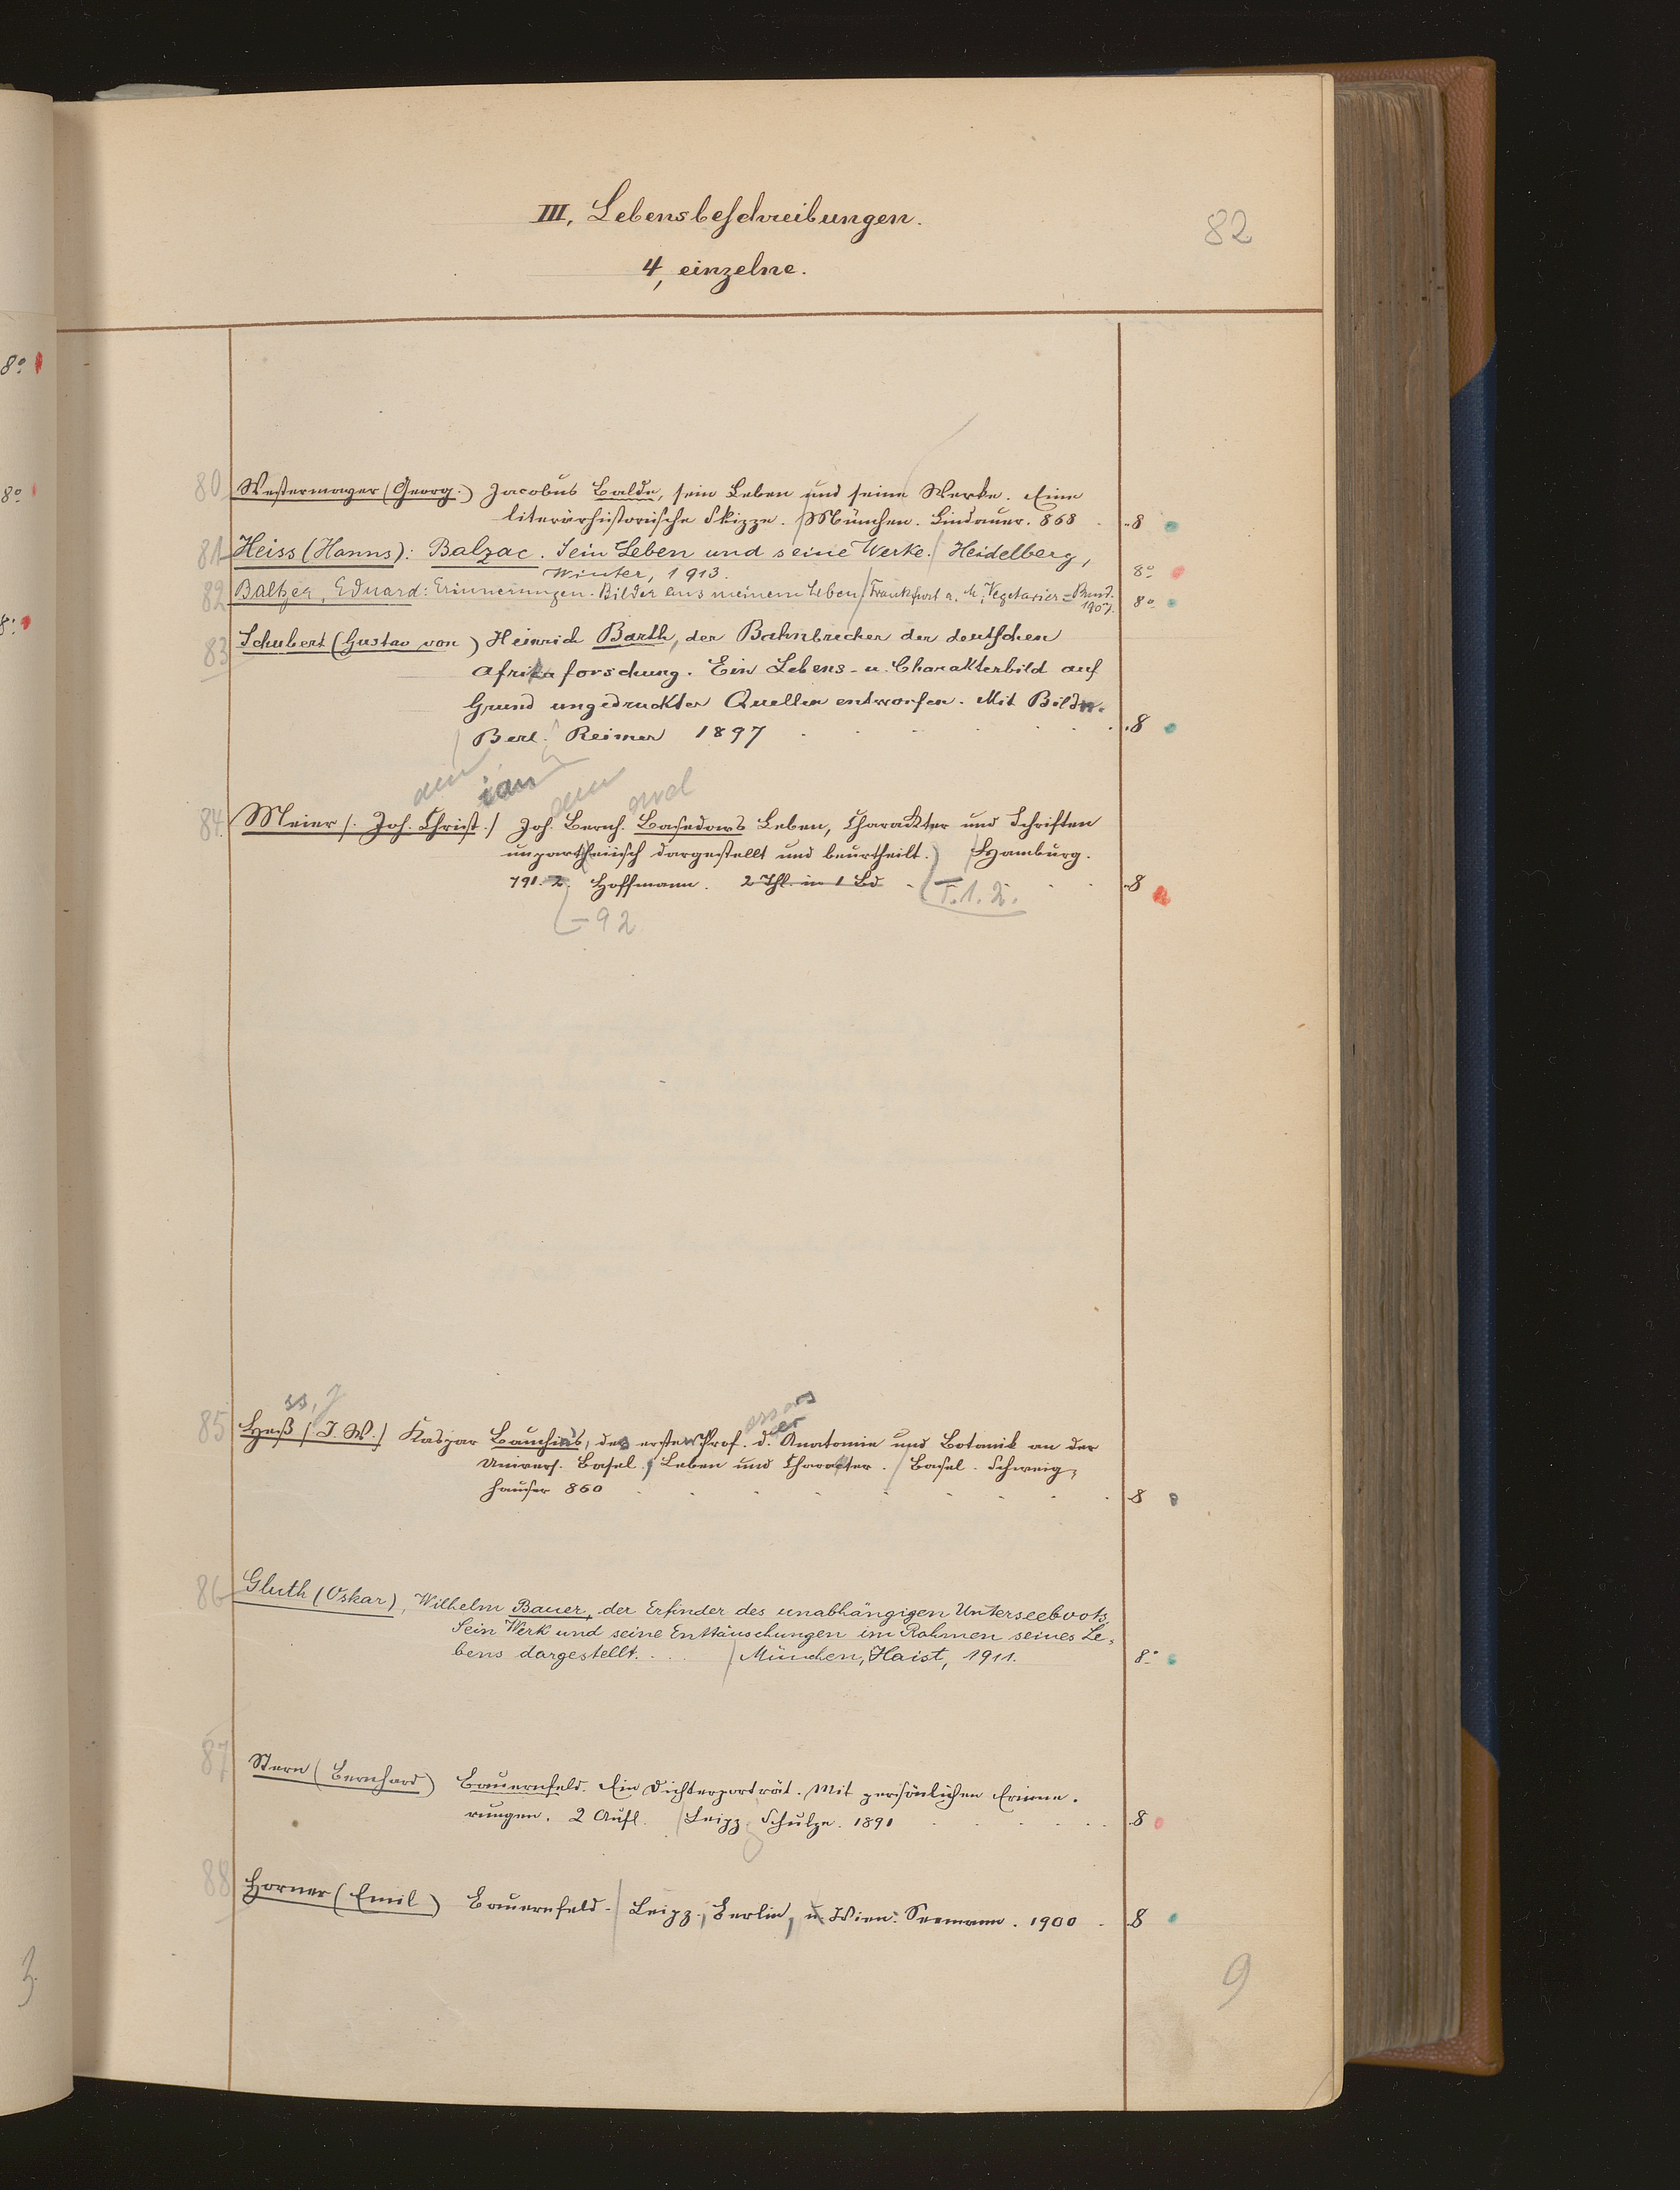 III, Lebensbeschreibungen.
82
4, einzelne.
80 Westermayer (Georg.) Jacobus Balde, sein Leben und seine Werke. Eine
literärhistorische Skizze. / München. Lindauer. 868 . 8
81 Heiss (Hanns): Balzac. Sein Leben und seine Werke. / Heidelberg,
Winter, 1913. 8°
82 Baltzer, Eduard: Erinnerungen. Bilder aus meinem Leben / Frankfurt a. M., Vegetarier=Bund. 8°
1907.
83 Schubert (Gustav von) Heinrich Barth, der Bahnbrecher der deutschen
Afrikaforschung. Ein Lebens- u. Charakterbild auf
Grund ungedruckter Quellen entworfen. Mit Bildn.
Berl. Reimer 1897 . 8
ann ian ann ard
84. Meier /. Joh. Christ./ Joh. Bernh. Basedows Leben, Charakter und Schriften
unpartheiisch dargestellt und beurtheilt.) / Hamburg.
791. 2. Hoffmann. 2 Thl. in 1 Bd (T.1.2. 8
-92
ss, J
essors
er
85 Heß /. I. W./ Kaspar Bauhin's, des ersten Prof. d. Anatomie und Botanik an der
Univers. Basel, Leben und Character. / Basel. Schweig=
hauser 860 . 8
86 Gluth (Oskar), Wilhelm Bauer, der Erfinder des unabhängigen Unterseeboots.
Sein Werk und seine Enttäuschungen im Rahmen seines Le=
bens dargestellt. . . . / München, Haist, 1911. 8°
87 Stern (Bernhard) Bauernfeld. Ein Dichterporträt. Mit persönlichen Erinne-
rungen. 2 Aufl. / Leipz. Schulze. 1891 8
88 Horner (Emil) Bauernfeld. / Leipz., Berlin, u. Wien. Seemann. 1900 . 8
9
8°
8°
8°
3.